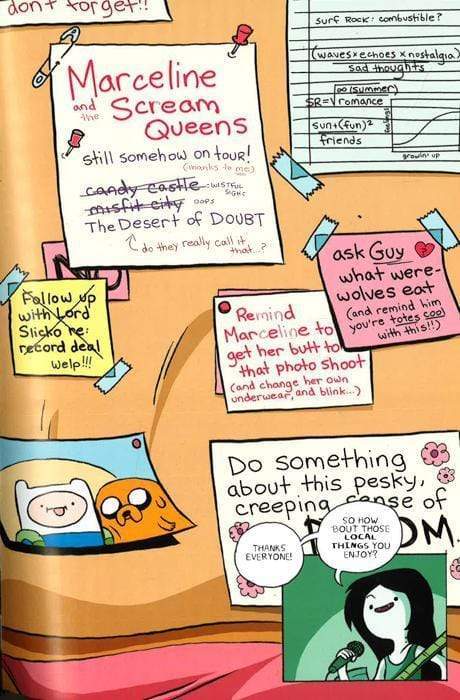 don't forget!!
surf Rock: combustible?
(waves x echoes x nostalgia)
sad thoughts
∞ (summer)
SR=√romance
sun+(fun)²
friends
feelings
growin' up
Marceline
and the Scream
Queens
still somehow on tour!
(thanks to me)
candy castle :WISTFUL SIGH:
misfit city oops
The Desert of DOUBT
do they really call it that...?
ask Guy
what were-
wolves eat
(and remind him
you're totes cool
with this!!)
Follow up
with Lord
Slicko re:
record deal
welp!!!
Remind
Marceline to
get her butt to
that photo shoot
(and change her own
underwear, and blink...)
Do something
about this pesky,
creeping sense of
THANKS
EVERYONE!
SO HOW
'BOUT THOSE
LOCAL
THINGS YOU
ENJOY?